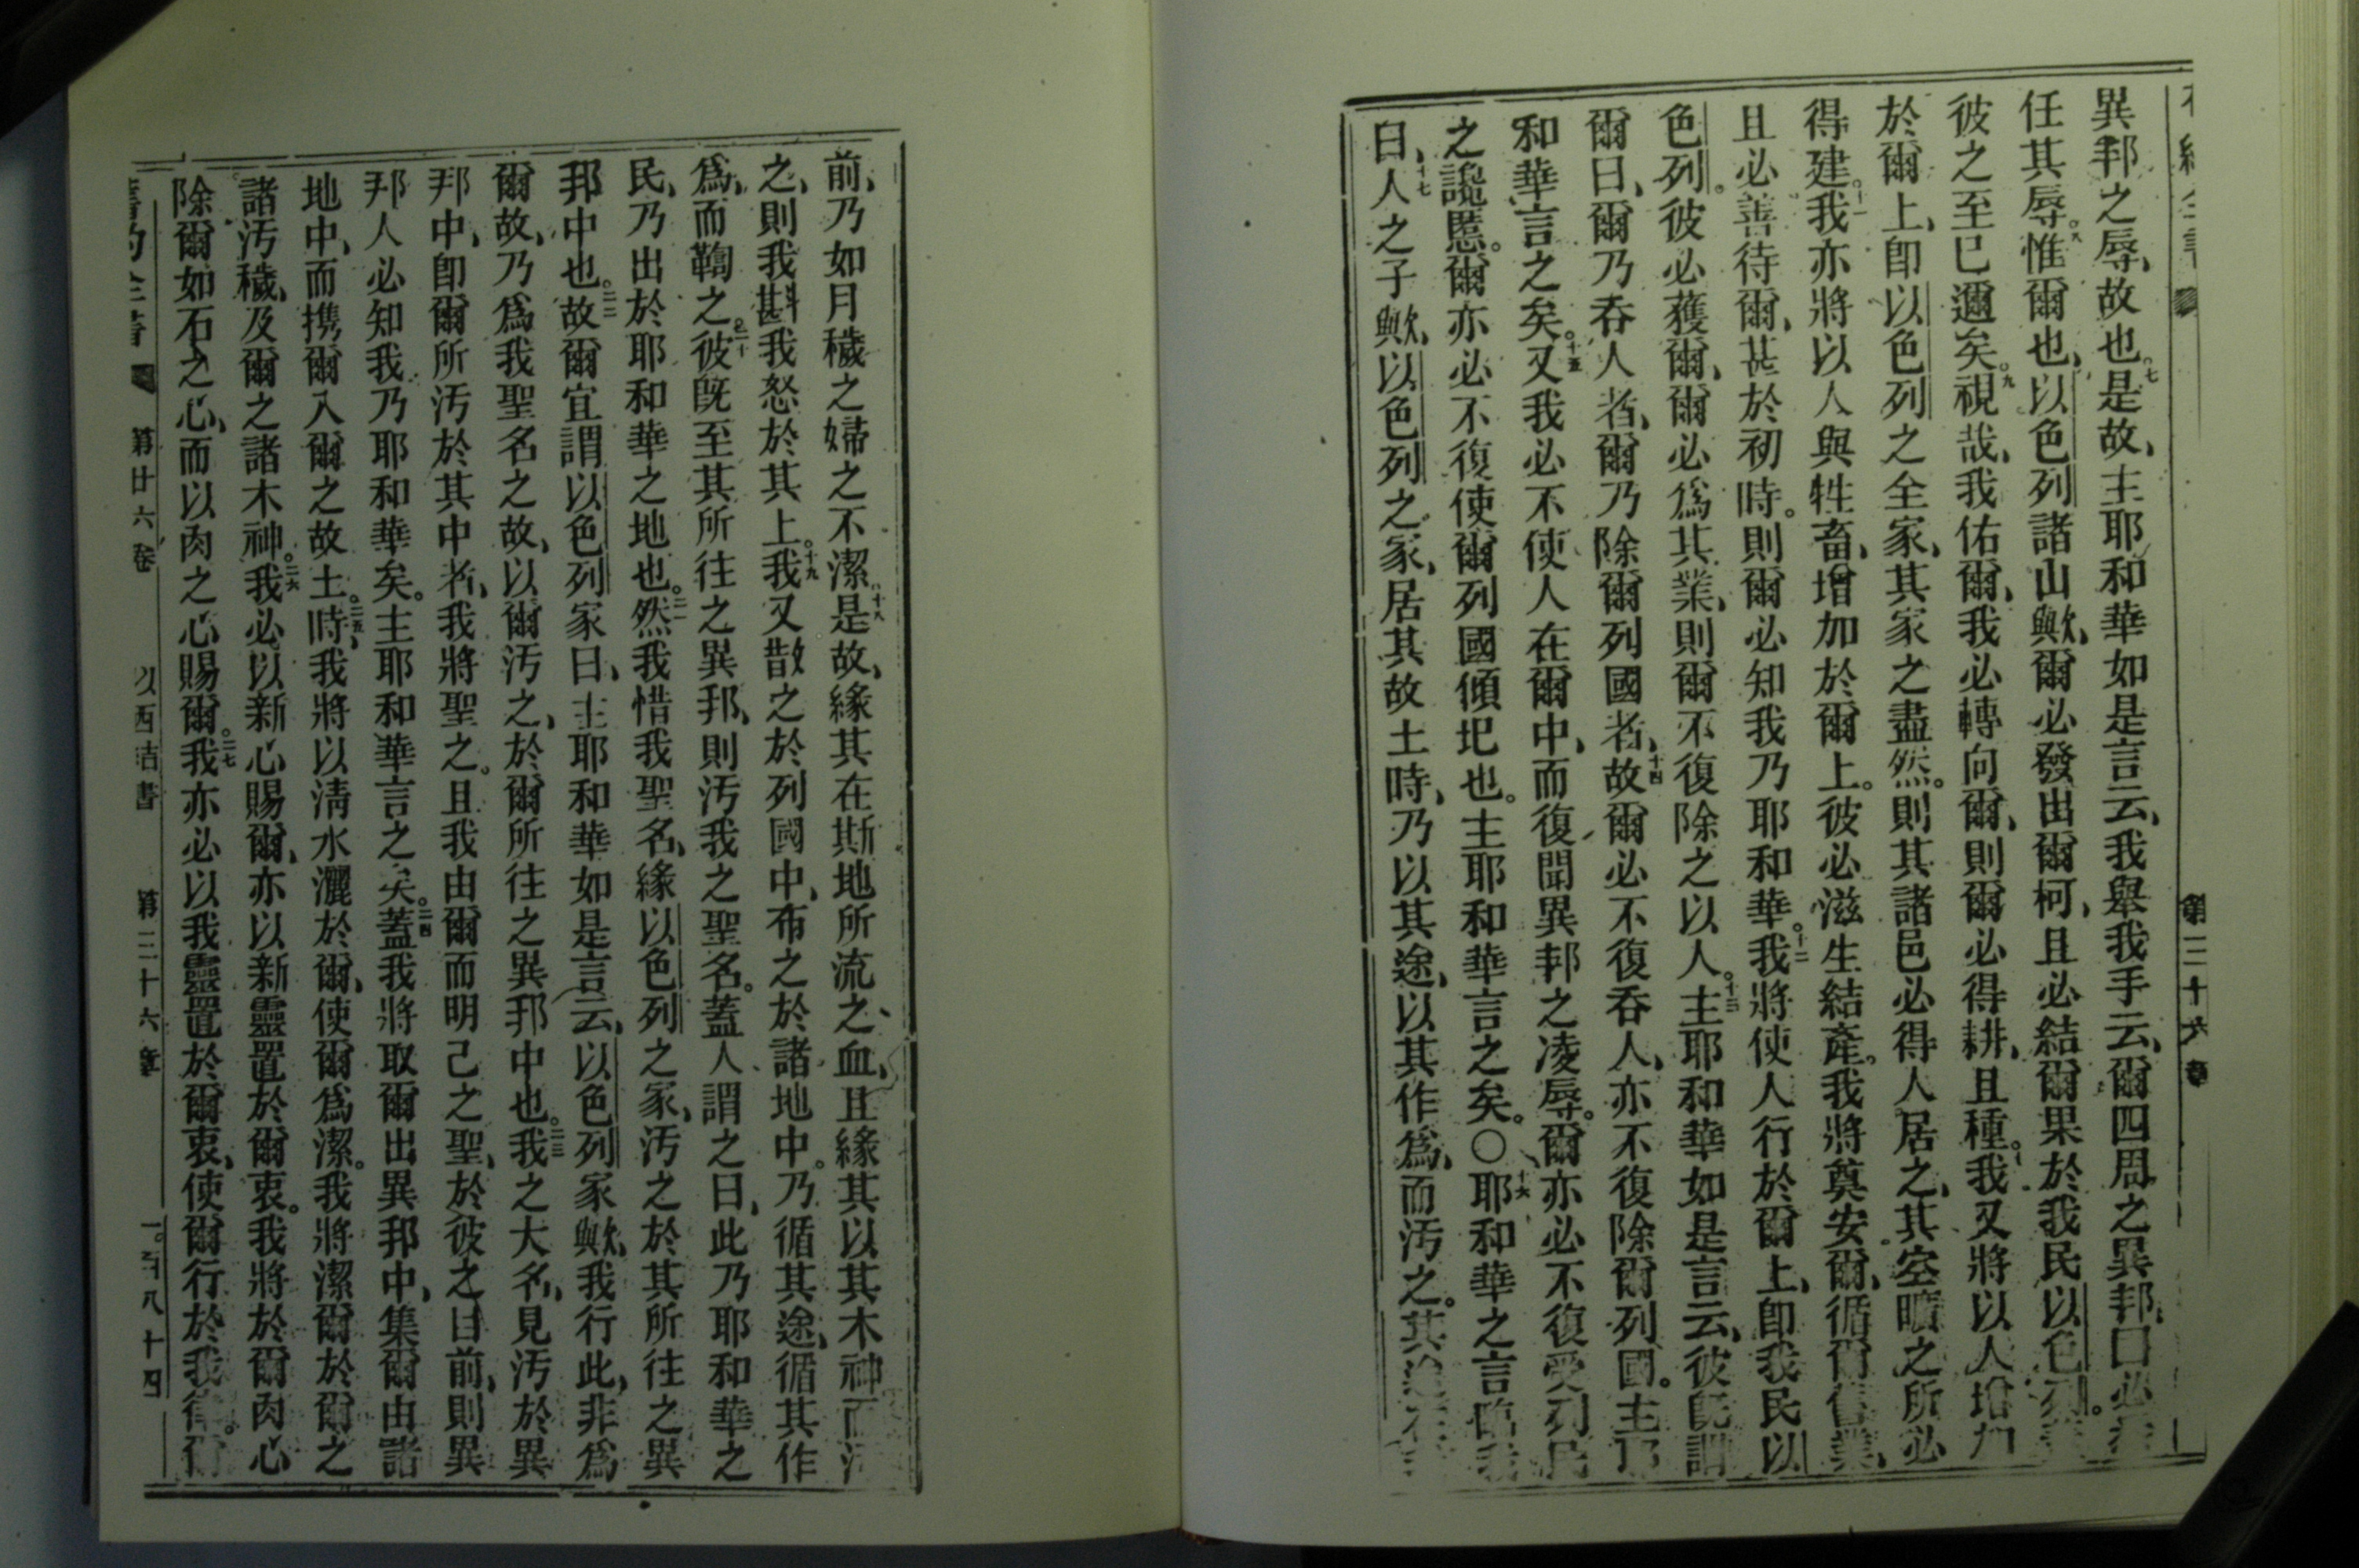 第三十六章
異邦之辱、故也。七是故、主耶和華如是言云、我舉我手云、爾四周之異邦、口必
任其辱。八惟爾也、以色列諸山歟、爾必發出爾柯、且必結爾果於我民以色列。
彼之至已邇矣。九視哉、我佑爾、我必轉向爾、則爾必得耕、且種。十我又將以人增加
於爾上、卽以色列之全家、其家之盡然。則其諸邑必得人居之、其空曠之所必
得建。十一我亦將以人與牲畜、增加於爾上。彼必滋生結產。我將奠安爾、循爾舊業、
且必善待爾、甚於初時。則爾必知我乃耶和華。十二我將使人行於爾上、卽我民以
色列。彼必獲爾、爾必爲其業、則爾不復除之以人。十三主耶和華如是言云、彼旣謂
爾曰、爾乃吞人者、爾乃除爾列國者、十四故爾必不復吞人、亦不復除爾列國。主耶
和華言之矣。十五又我必不使人在爾中、而復聞異邦之凌辱。爾亦必不復受列民
之讒慝。爾亦必不復使爾列國傾圯也。主耶和華言之矣。〇十六耶和華之言臨我
曰、十七人之子歟、以色列之家、居其故土時、乃以其途、以其作爲、而汚之。其途在
前、乃如月穢之婦之不潔。十八是故、緣其在斯地所流之血、且緣其以其木神而汚
之、則我斟我怒於其上。十九我又散之於列國中、布之於諸地中。乃循其途、循其作
爲、而鞫之。二十彼旣至其所往之異邦、則汚我之聖名。蓋人謂之曰、此乃耶和華之
民、乃出於耶和華之地也。二一然我惜我聖名、緣以色列之家、汚之於其所往之異
邦中也。二二故爾宜謂以色列家曰、主耶和華如是言云、以色列家歟、我行此、非爲
爾故、乃爲我聖名之故、以爾汚之、於爾所往之異邦中也。二三我之大名、見汚於異
邦中、卽爾所汚於其中者、我將聖之。且我由爾而明己之聖、於彼之目前、則異
邦人必知我乃耶和華矣。主耶和華言之矣。二四蓋我將取爾出異邦中、集爾由諸
地中、而攜爾入爾之故土。二五時、我將以淸水灑於爾、使爾爲潔。我將潔爾於爾之
諸汚穢、及爾之諸木神。二六我必以新心賜爾、亦以新靈置於爾衷。我將於爾肉心
除爾如石之心、而以肉之心賜爾。二七我亦必以我靈置於爾衷、使爾行於我律。
舊約全書 第廿六卷 以西結書 第三十六章 一。百八十四